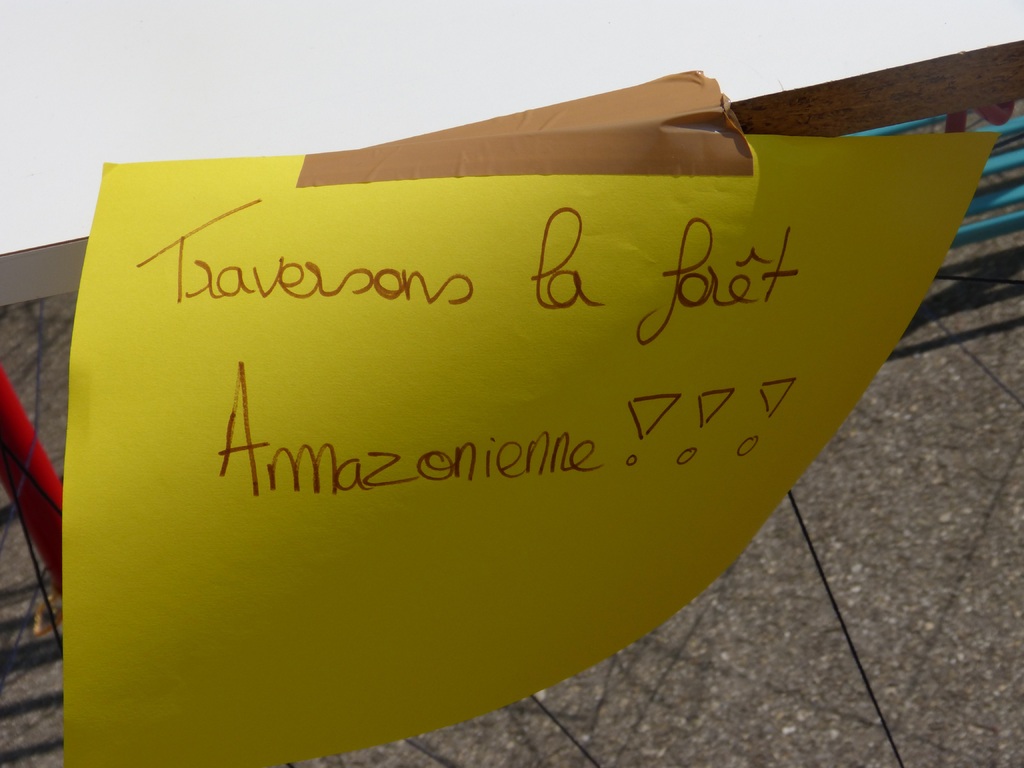 Traversons la forêt
Amazonienne !!!